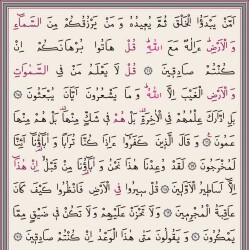 اَمَّنْ يَبْدَؤُا الْخَلْقَ ثُمَّ يُعٖيدُهُ وَمَنْ يَرْزُقُكُمْ مِنَ السَّمَٓاءِ
وَالْاَرْضِ ءَاِلٰهٌ مَعَ اللّٰهِ قُلْ هَاتُوا بُرْهَانَكُمْ اِنْ
كُنْتُمْ صَادِقٖينَ قُلْ لَا يَعْلَمُ مَنْ فِي السَّمٰوَاتِ
وَالْاَرْضِ الْغَيْبَ اِلَّا اللّٰهُ وَمَا يَشْعُرُونَ اَيَّانَ يُبْعَثُونَ
بَلِ ادَّارَكَ عِلْمُهُمْ فِي الْاٰخِرَةِ بَلْ هُمْ فٖي شَكٍّ مِنْهَا بَلْ هُمْ مِنْهَا
عَمُونَ وَقَالَ الَّذٖينَ كَفَرُٓوا ءَاِذَا كُنَّا تُرَابًا وَاٰبَٓاؤُنَٓا اَئِنَّا
لَمُخْرَجُونَ لَقَدْ وُعِدْنَا هٰذَا نَحْنُ وَاٰبَٓاؤُنَا مِنْ قَبْلُ اِنْ هٰذَٓا
اِلَّٓا اَسَاطٖيرُ الْاَوَّلٖينَ قُلْ سٖيرُوا فِي الْاَرْضِ فَانْظُرُوا كَيْفَ كَانَ
عَاقِبَةُ الْمُجْرِمٖينَ وَلَا تَحْزَنْ عَلَيْهِمْ وَلَا تَكُنْ فٖي ضَيْقٍ مِمَّا
يَمْكُرُونَ وَيَقُولُونَ مَتٰى هٰذَا الْوَعْدُ اِنْ كُنْتُمْ صَادِقٖينَ